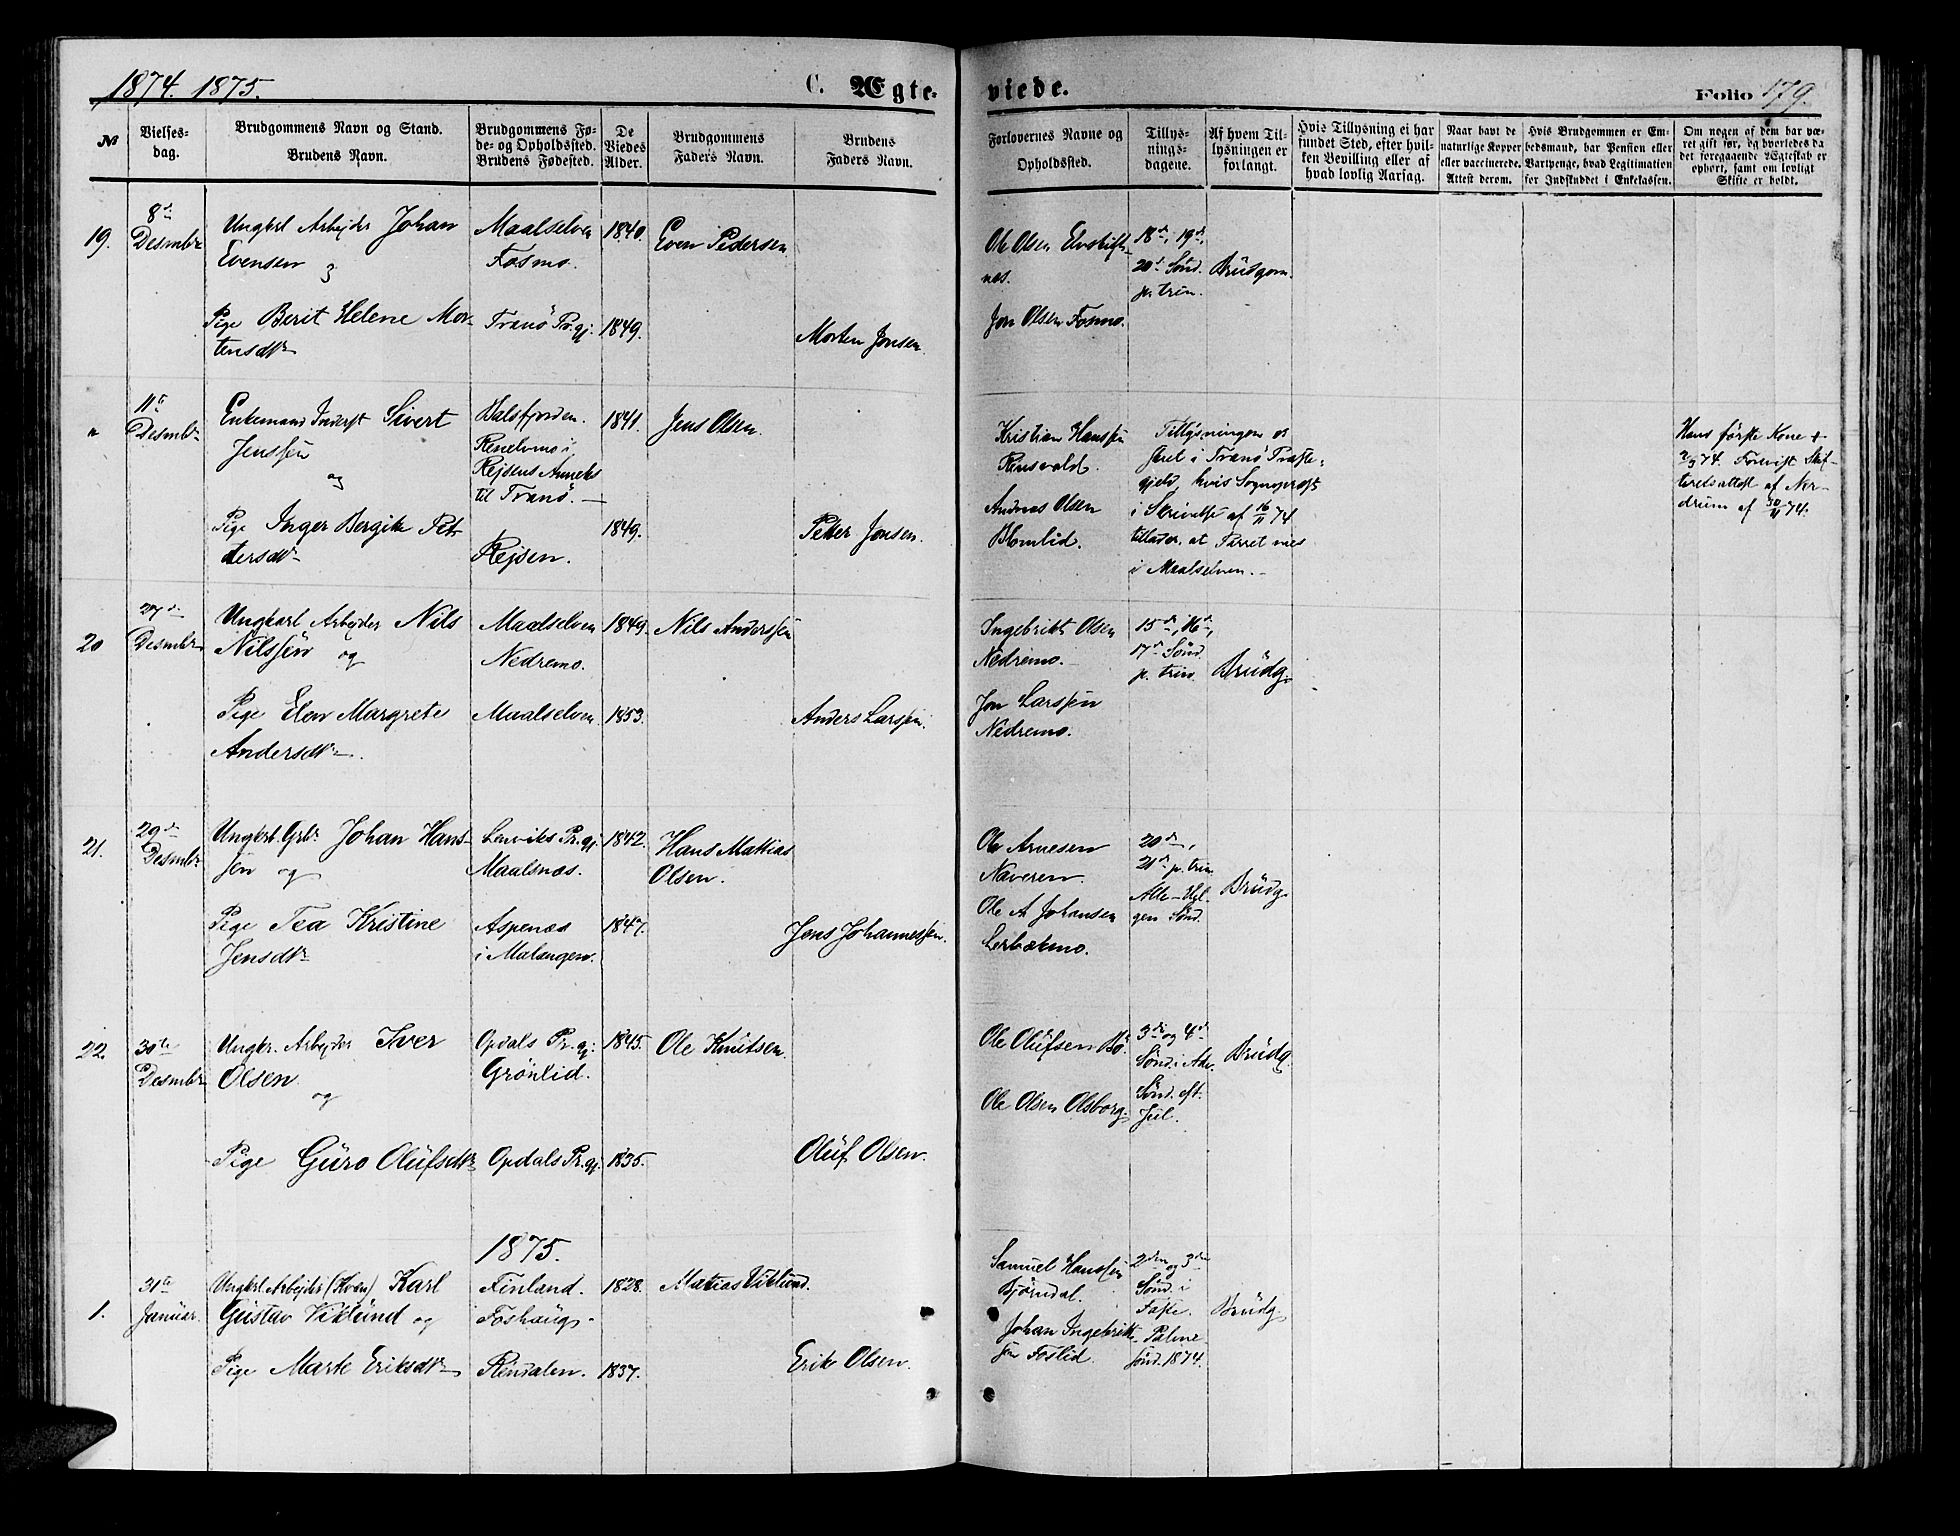 1874. 1875. C. Ægte- viede. Folio 179.
№
Vielses-
dag.
Brudgommens Navn og Stand.
Brudens Navn.
Brudgommens Fø-
de- og Opholdssted.
Brudens Fødested.
De
Viedes
Alder.
Brudgommens
Faders Navn.
Brudens
Faders Navn.
Forlovernes Navne og
Opholdssted.
Tillys-
nings-
dagene.
Af hvem Til-
lysningen er
forlangt.
Hvis Tillysning ei har
fundet Sted, efter hvil-
ken Bevilling eller af
hvad lovlig Aarsag.
Naar havt de
naturlige Kopper
eller vaccinerede.
Attest derom.
Hvis Brudgommen er Em-
bedsmand, har Pension eller
Vartpenge, hvad Legitimation
for Indskuddet i Enkekassen.
Om nogen af dem har væ-
ret gift før, og hvorledes da
det foregaaende Ægteskab er
ophørt, samt om lovligt
Skifte er holdt.
19.
8de
Desmbr
Ungkrl Arbejder Johan
Evensen og
Pige Berit Helene Mor-
tensdtr
Maalselven
Fosmo.
Tranö Pr.gj.
1840.
1849.
Even Pedersen
Morten Jonsen.
Ole Olsen
nes.
Jon Olsen Fosmo.
18de, 19de,
20de Sönd.
p. trin.
Brüdgom.
"
11te
Desmbr
Enkemand Inderst Sivert
Jenssen
og
Pige Inger Bergitte Pet-
tersdtr
Balsfjorden.
i
Rejsens Anneks
til Tranö. —
Rejsen.
1841.
1849.
Jens Olsen.
Petter Jonsen.
Kristian Hanssen
Andreas Olsen
Blomlid.
Tillysningen er
skeet i Tranö Præste-
gjeld, hvis Sogneprest
i Skrivelse af 16/11 74
tillader, at Parret vies
i Maalselven. —
Hans förste Kone +
2/3 74. Forevist Skif-
teretsattest af Ner-
drum af 30/11 74.
20
27de
Desmbr
Ungkarl Arbejder Nils
Nilssen og
Pige Elen Margrete
Andersdtr
Maalselven
Nedremo.
Maalselven
1849.
1853.
Nils Anderssen
Anders Larssen.
Ingebrikt Olsen
Nedremo.
Jon Larssen
Nedremo.
15de, 16de,
17de Sönd.
p. trin.
Brüdg.
21.
29de
Desmbr
Ungkrl. Grbr Johan Hans-
sen og
Pige Tea Kristine
Jensdtr
Lenviks Pr.gj.
Maalsnæs.
Aspenæs
i Malangen.
1842.
1847.
Hans Mattias
Olsen.
Jens Johannessen.
Ole Arnesen
Naveren.
Ole A Johansen
Lerbækmo.
20de,
21de p. trin.
Alle-Hel-
gen Sönd.
Brüdg.
22.
30te
Desmbr
Ungkr. Arbejder Iver
Olsen
og
Pige Güro Olüfsdtr
Opdals Pr.gj.
Grönlid.
Opdals Pr.gj.
1845.
1835.
Ole Knütsen.
Olüf Olsen.
Ole Olüfsen Bö.
Ole Olsen Olsborg.
3de og 4de
Sönd. i Adv.
Sönd. eft.
Jul.
Brüdg.
1875.
1.
31te
Januar.
Ungkrl. Arbejder (Kven) Karl
Gustav Viklünd og
Pige Marte Eriksdtr
Finland.
Foshaüg.
Rendalen.
1828.
1837.
Matias Viklund.
Erik Olsen.
Samuel Hanssen
Björndal.
Johan Ingebrikt-
sen Foslid.
2den og 3de
Sönd. i
Faste.
Palme
sönd. 1874.
Brüdg.